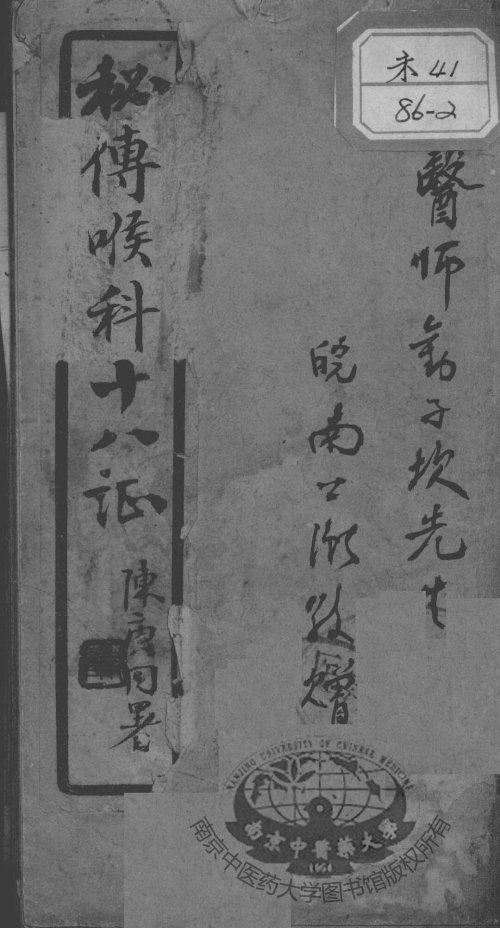 未41
86-2
醫師
子坎先生
皖南
敬贈
秘傳喉科十八証
陳
同署
NANJING UNIVERSITY OF CHINESE MEDICINE
南京中醫藥大學
1954
南京中医药大学图书馆版权所有